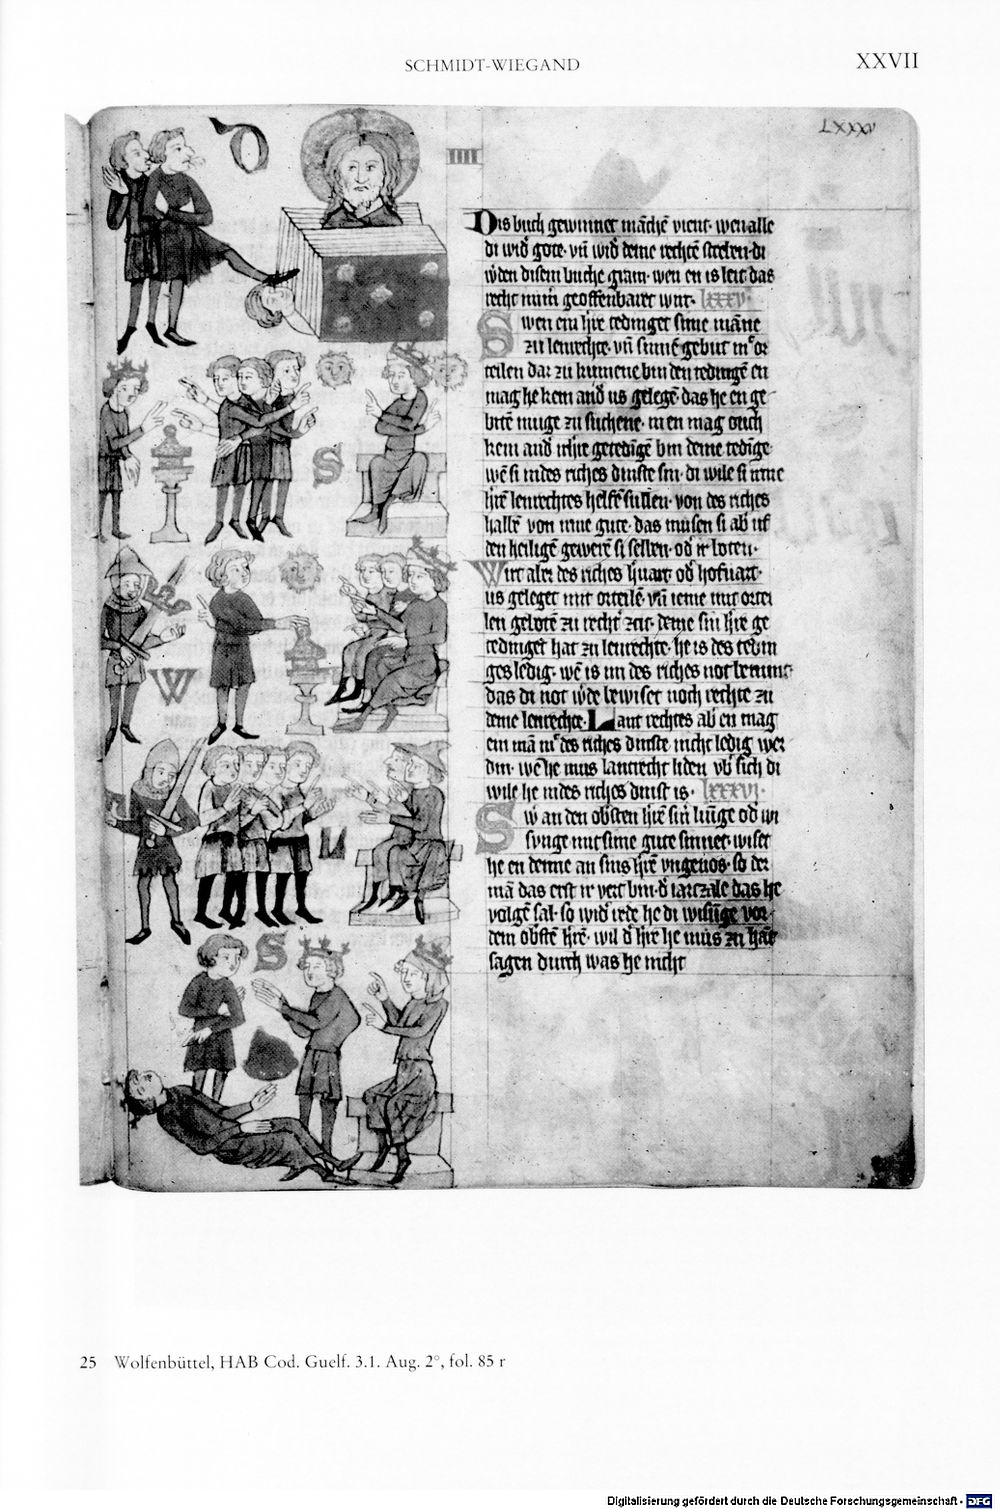 SCHMIDT-WIEGAND
XXVII
LXXXV
D
IIII
Dis buch gewinnet māchē vient· wen alle
di wid gote· vn̄ wid deme rechtē streben· di
wden disem buche gram· wen en is leit das
recht geoffenbaret wirt· lxxxv·
Swen ein hͬre tedinget sime māne
zu lenrechte· vn̄ sinnē gebut
teilen dar zu kumene bin den tedingē en
mag he kein and us gelegē· das he en ge
muge zu suchene· men mag ouch
kein and getedīgē bin deme tedīge·
wē si indes riches dinste sin· di wile si irme
hͬrē lenrechtes helfē sullen· von des riches
halbē von eime gute· das musen si ab uf
den heiligē gewerē si selben· od ir boten·
Wirt aber des riches hͬuart· od hofuart·
us geleget mit orteilē· vn̄ ieme mit ortei
len geboten zu rechtˀ zeit· deme sin hͬre ge
tedinget hat zu lenrechte· he is des tedin
ges ledig· wē is im des riches not
das di not wde bewiset noch rechte zu
deme lenrechte· Lant rechtes ab en mag
ein mā mͭ des riches dinste nicht ledig wer
din· wē he mus lantrecht liden vb sich di
wile he indes riches dinst is· lxxxvi·
Sw an den obstē hͬrē sin od wi
svnge mit sime gute sinnet· wiset
he en denne an sins hͬrē vngenos· so der
mā das erst ir vert bin d iarczale das he
volgē sal· so wid rede he di wisūge vor
dem obstē hͬrē· wil d hͬre he mus zu hāt
sagen durch was he nicht
S
W
L
S
25 Wolfenbüttel, HAB Cod. Guelf. 3.1. Aug. 2°, fol. 85 r
Digitalisierung gefördert durch die Deutsche Forschungsgemeinschaft - DFG